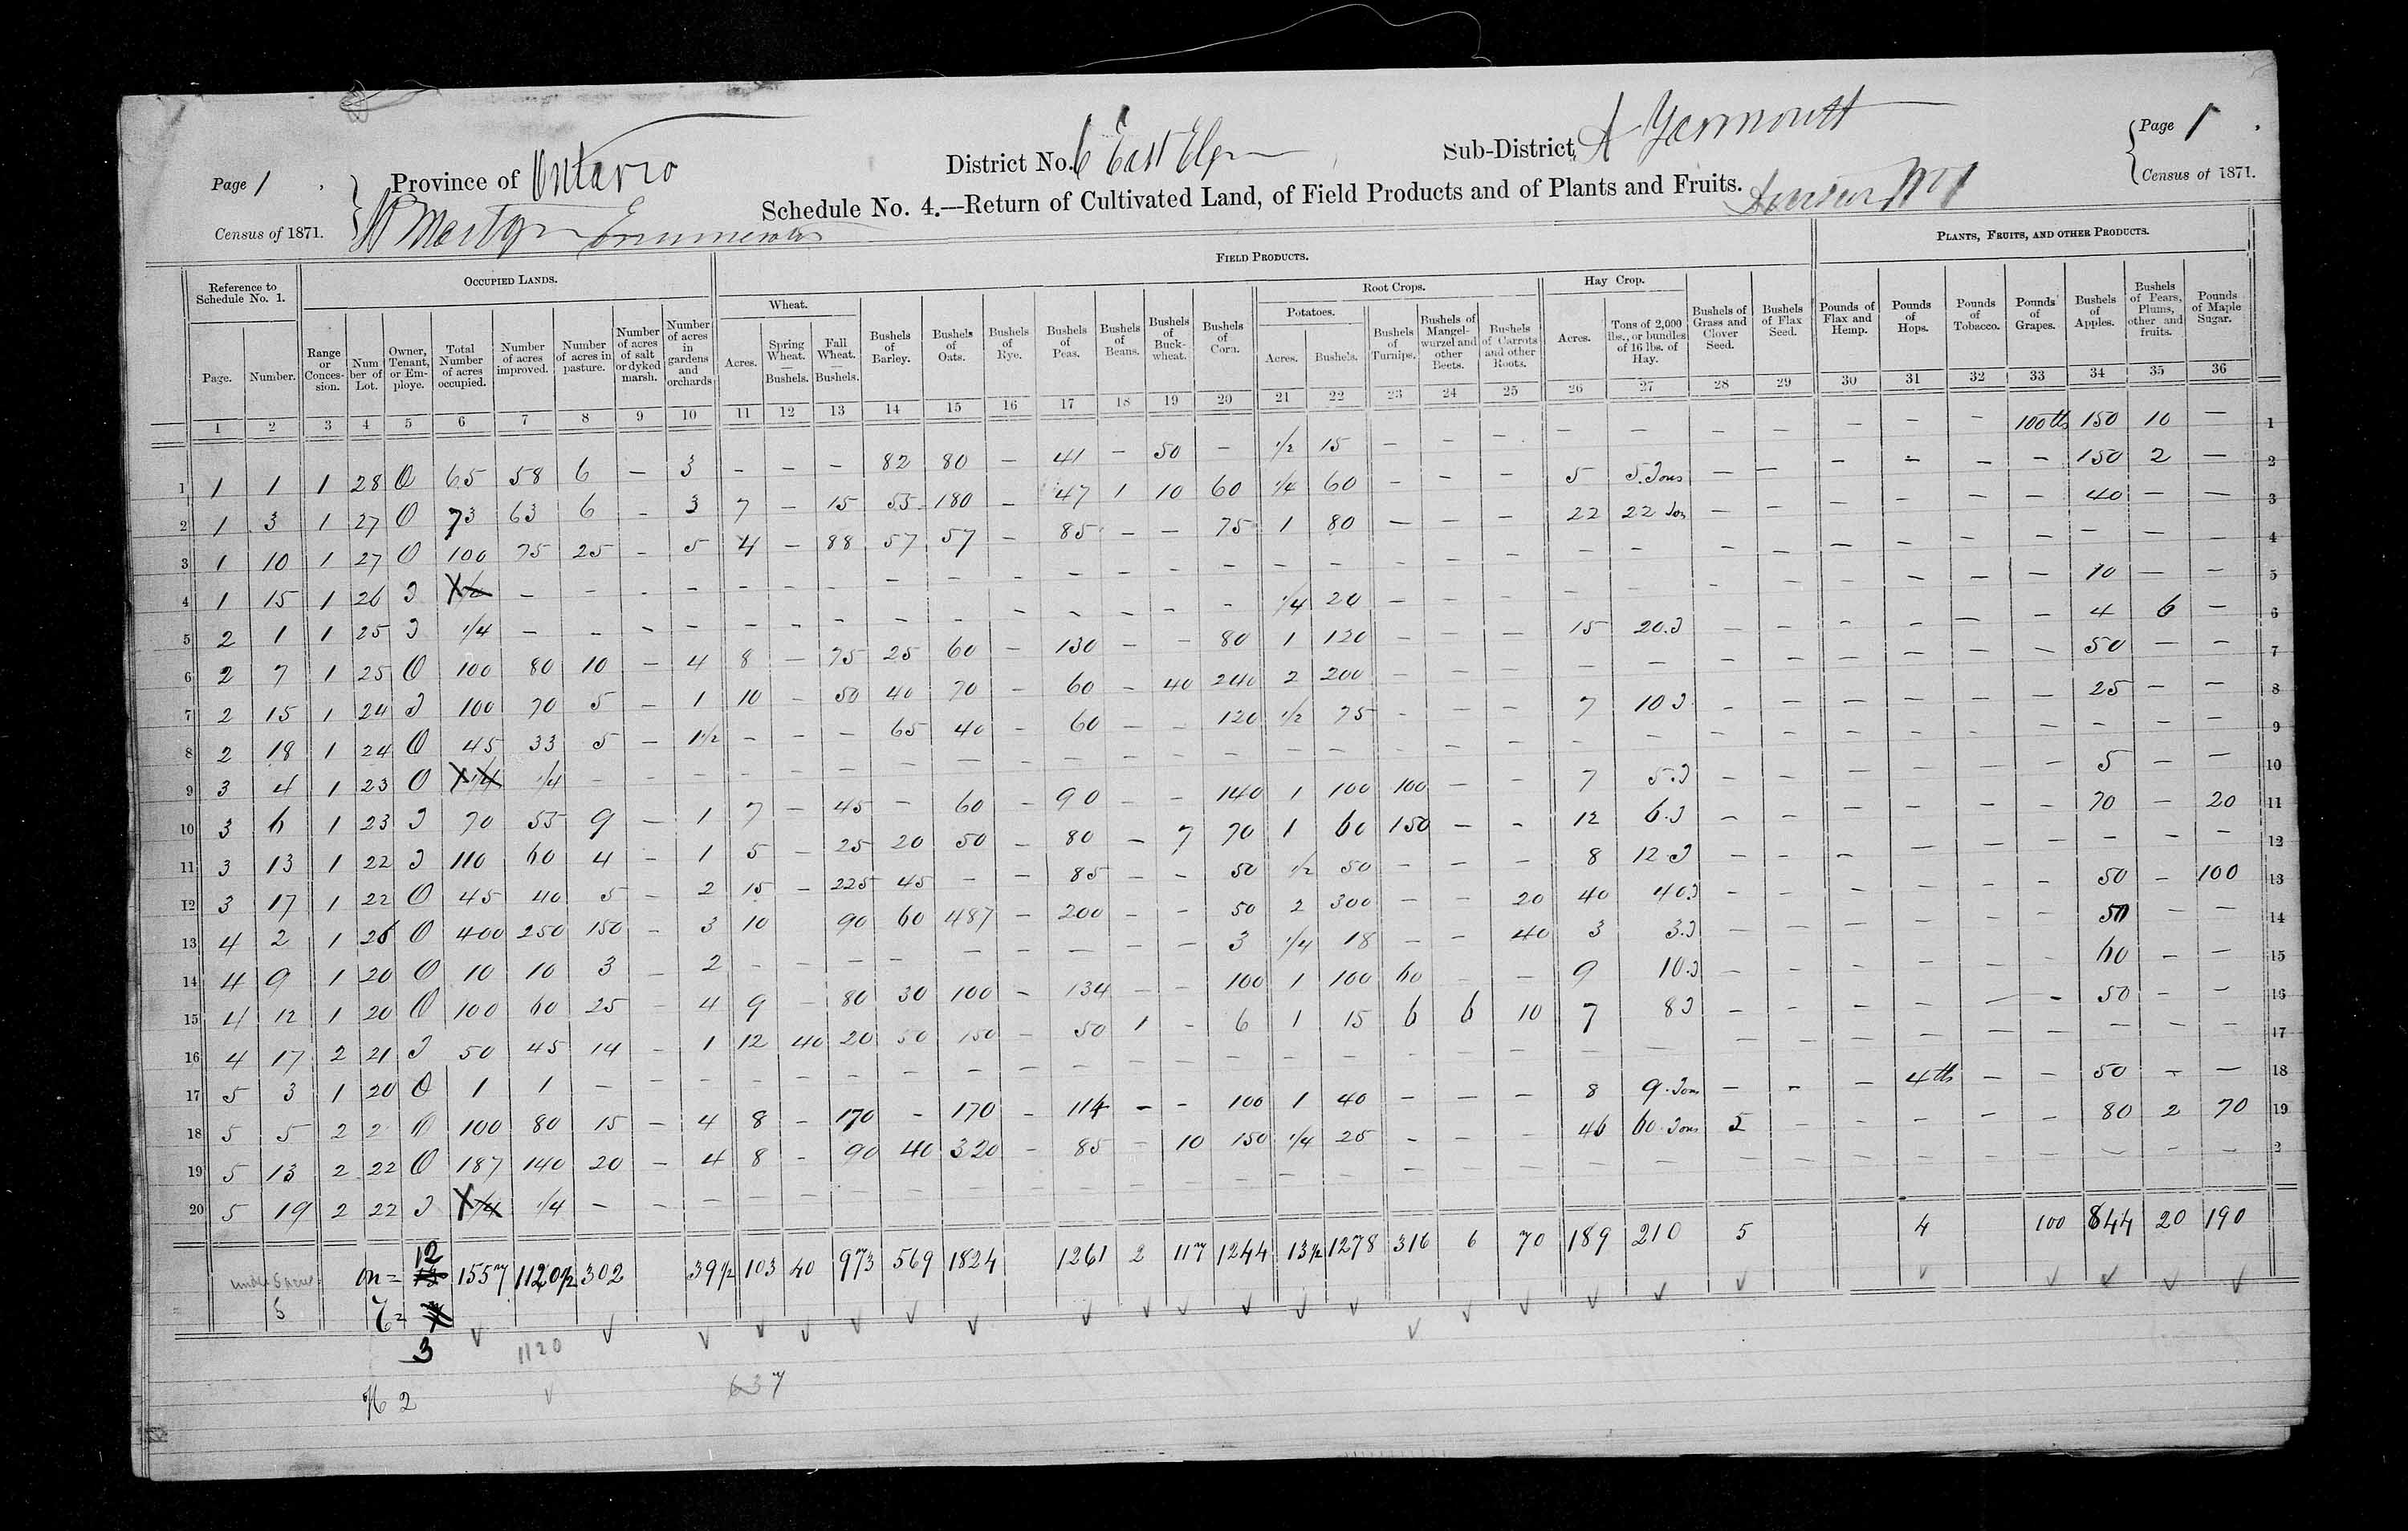 Page 1
Census of 1871.
Province of Ontario
Enumerator
District No. 6 East Elgin
Sub-District, A Yarmouth
Schedule No. 4.—Return of Cultivated Land, of Field Products and of Plants and Fruits.
Page 1
Census of 1871.
Reference to Schedule No. 1.
OCCUPIED LANDS.
FIELD PRODUCTS.
PLANTS, FRUITS, AND OTHER PRODUCTS.
Wheat.
Root Crops.
Potatoes.
Hay Crop.
Page.
Number.
Range or Conces-sion.
Num ber of Lot.
Owner, Tenant, or Em-ploye.
Total Number of acres occupied.
Number of acres improved.
Number of acres in pasture.
Number of acres of salt or dyked marsh.
Number of acres in gardens and orchards
Acres.
Spring Wheat. — Bushels.
Fall Wheat. — Bushels.
Bushels of Barley.
Bushels of Oats.
Bushels of Rye.
Bushels of Peas.
Bushels of Beans.
Bushels of Buck-wheat.
Bushels of Corn.
Acres.
Bushels.
Bushels of Turnips.
Bushels of Mangel-wurzel and other Beets.
Bushels of Carrots and other Roots.
Acres.
Tons of 2,000 lbs., or bundles of 16 lbs. of Hay.
Bushels of Grass and Clover Seed.
Bushels of Flax Seed.
Pounds of Flax and Hemp.
Pounds of Hops.
Pounds of Tobacco.
Pounds of Grapes.
Bushels of Apples.
Bushels of Pears, Plums, other and fruits.
Pounds of Maple Sugar.
1 2 3 4 5 6 7 8 9 10 11 12 13 14 15 16 17 18 19 20 21 22 23 24 25 26 27 28 29 30 31 32 33 34 35 36
1 1 1 1 28 O 65 58 6 — 3 — — — 82 80 — 41 — 50 — 1/2 15 — — — — — — — — — — 100 lbs 150 10 — 1
2 1 3 1 27 O 73 63 6 — 3 7 — 15 55 180 — 47 1 10 60 1/4 60 — — — 5 5.Tons — — — — — — 150 2 — 2
3 1 10 1 27 O 100 75 25 — 5 4 — 88 57 57 — 85 — — 75 1 80 — — — 22 22 Ton — — — — — — 40 — — 3
4 1 15 1 26 T — — — — — — — — — — — — — — — — — — — — — — — — — — — — — — — 4
5 2 1 1 25 T 1/4 — — — — — — — — — — — — — — 1/4 20 — — — — — — — — — — — 10 — — 5
6 2 7 1 25 O 100 80 10 — 4 8 — 75 25 60 — 130 — — 80 1 120 — — — 15 20.T — — — — — — 4 6 — 6
7 2 15 1 24 T 100 70 5 — 1 10 — 50 40 70 — 60 — 40 240 2 200 — — — — — — — — — — — 50 — — 7
8 2 18 1 24 O 45 33 5 — 1 1/2 — — — 65 40 — 60 — — 120 1/2 75 — — — 7 10 T — — — — — — 25 — — 8
9 3 4 1 23 O 1/4 1/4 — — — — — — — — — — — — — — — — — — — — — — — — — — — — — 9
10 3 6 1 23 T 70 55 9 — 1 7 — 45 — 60 — 90 — — 140 1 100 100 — — 7 5.T — — — — — — 5 — — 10
11 3 13 1 22 T 110 60 4 — 1 5 — 25 20 50 — 80 — 7 70 1 60 150 — — 12 6.T — — — — — — 70 — 20 11
12 3 17 1 22 O 45 40 5 — 2 15 — 225 45 — — 85 — — 50 1/2 50 — — — 8 12 T — — — — — — — — — 12
13 4 2 1 26 O 400 250 150 — 3 10 90 60 487 — 200 — — 50 2 300 — — 20 40 40T — — — — — — 50 — 100 13
14 4 9 1 20 O 10 10 3 — 2 — — — — — — — — — 3 1/4 18 — — 40 3 3.T — — — — — — 50 — — 14
15 4 12 1 20 O 100 60 25 — 4 9 — 80 30 100 — 134 — — 100 1 100 60 — — 9 10.T — — — — — — 60 — — 15
16 4 17 2 21 T 50 45 14 — 1 12 40 20 50 150 — 50 1 — 6 1 15 6 6 10 7 8T — — — — — — 50 — — 16
17 5 3 1 20 O 1 1 — — — — — — — — — — — — — — — — — — — — — — — — — — — — — 17
18 5 5 2 2 O 100 80 15 — 4 8 — 170 — 170 — 114 — — 100 1 40 — — — 8 9.Tons — — — 4 lb — — 50 — — 18
19 5 13 2 22 O 187 140 20 — 4 8 — 90 40 320 — 85 — 10 150 1/4 25 — — — 46 60.Tons 5 — — — — — 80 2 70 19
20 5 19 2 22 T 1/4 1/4 — — — — — — — — — — — — — — — — — — — — — — — — — — — — — 2
12
under 5 acres 1557 1120 1/2 302 39 1/2 103 40 973 569 1824 1261 2 117 1244 13 1/2 1278 316 6 70 189 210 5 4 100 844 20 190
5
3
1120
637
2